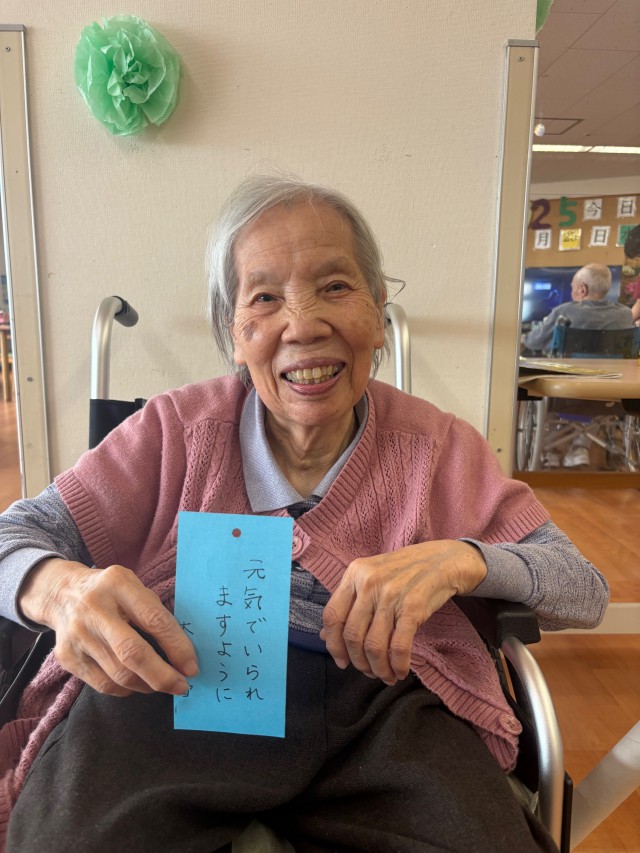 元気でいられ
ますように
25
今日
月日